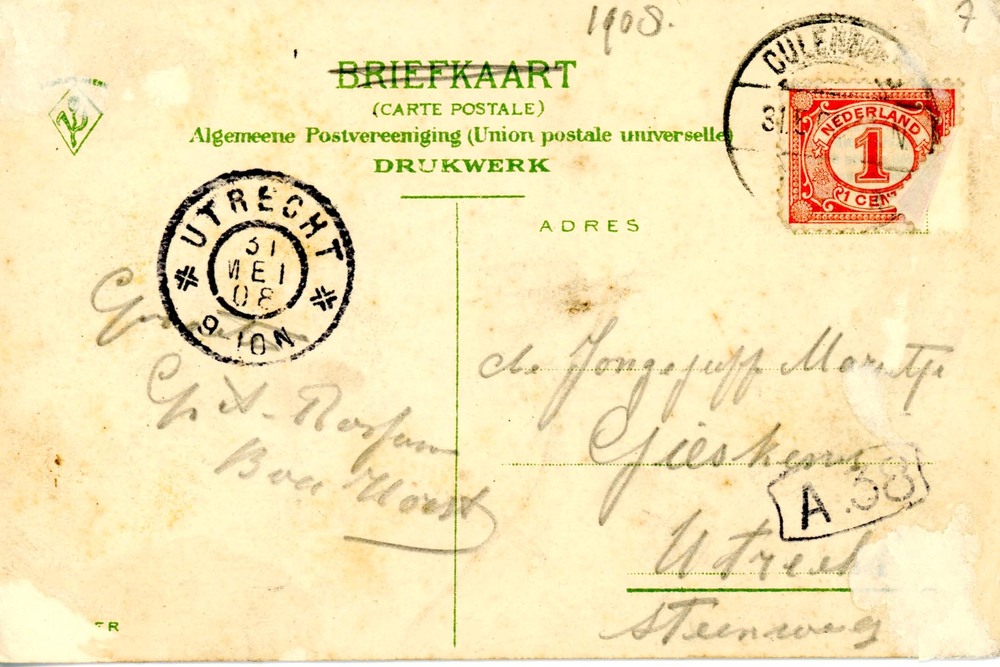 1908.
7
BRIEFKAART
(CARTE POSTALE)
Algemeene Postvereeniging (Union postale universelle)
DRUKWERK
CULENBO
31
NEDERLAND
1
1 CENT
UTRECHT
31
MEI
08
9-10N
ADRES
Jongejuff Marietje
Gieskens
A.38
Utrecht
Steenweg
ER